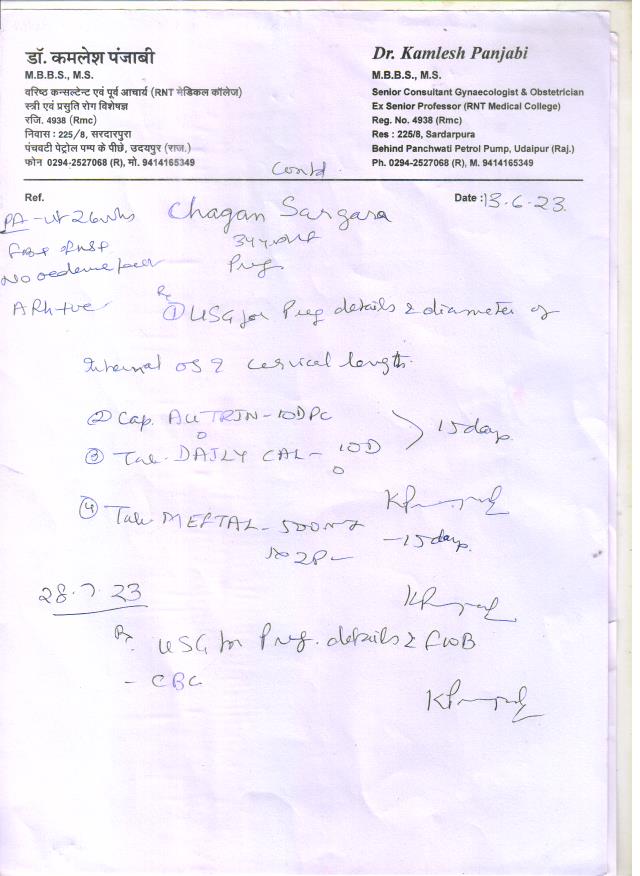 डॉ. कमलेश पंजाबी
M.B.B.S., M.S.
वरिष्ठ कन्सल्टेन्ट एवं पूर्व आचार्य (RNT मेडिकल कॉलेज)
स्त्री एवं प्रसुति रोग विशेषज्ञ
रजि. 4938 (Rmc)
निवास : 225/8, सरदारपुरा
पंचवटी पेट्रोल पम्प के पीछे, उदयपुर (राज.)
फोन 0294-2527068 (R), मो. 9414165349
Dr. Kamlesh Panjabi
M.B.B.S., M.S.
Senior Consultant Gynaecologist & Obstetrician
Ex Senior Professor (RNT Medical College)
Reg. No. 4938 (Rmc)
Res : 225/8, Sardarpura
Behind Panchwati Petrol Pump, Udaipur (Raj.)
Ph. 0294-2527068 (R), M. 9414165349
Contd.
Ref.
Date : 13.6.23
PA - ut 26 wks
No oedema feet
A Rh +ve
Chagan Sargara
Preg
Rx
① USG for Preg details & diameter of
internal os & cervical length.
② Cap. AUTRIN - 10D PC
③ Tab. DAILY CAL - 10D
15 days
④ Tab. MEFTAL - 500mg
- 15 days
28.7.23
Rx
USG for Preg. details & FWB
- CBC